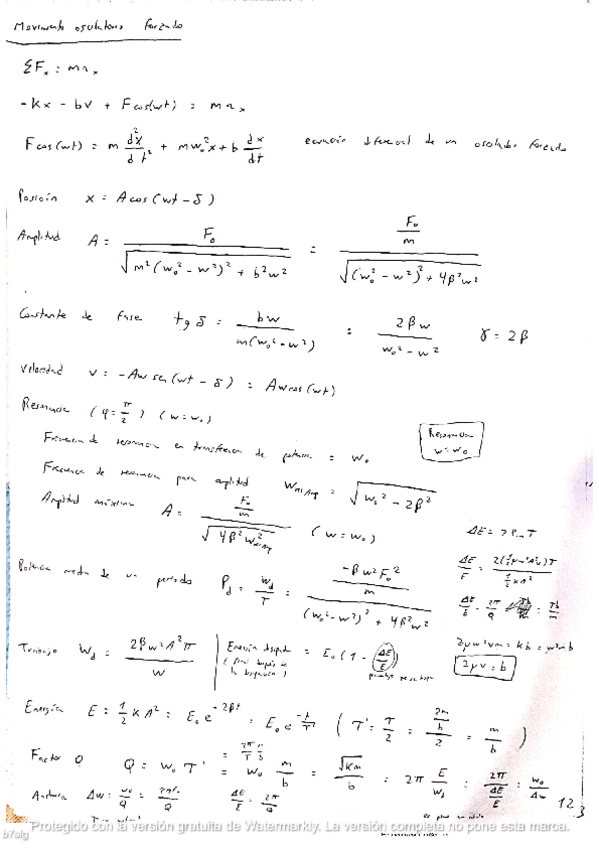 Movimiento oscilatorio forzado
ΣFx = max
-kx - bv + F cos(wt) = max
F cos(wt) = m d²x/dt² + mw₀²x + b dx/dt    ecuación diferencial de un oscilador forzado
Posición x = A cos(wt - δ)
Amplitud A = F₀ / √(m²(w₀² - w²)² + b²w²) = (F₀/m) / √((w₀² - w²)² + 4β²w²)
Constante de fase tg δ = bw / m(w₀² - w²) = 2βw / (w₀² - w²)    γ = 2β
Velocidad v = -Aw sen(wt - δ) = Aw cos(wt)
Resonancia (φ = π/2) (w = w₀)
Resonancia w = w₀
Frecuencia de resonancia en transferencia de potencia = w₀
Frecuencia de resonancia para amplitud = √(w₀² - 2β²)
Amplitud máxima A = (F₀/m) / √(4β²w²) (w = w₀)
ΔE/E
Potencia media de un periodo Pd = Wd/T = (-βw²F₀²/m) / ((w₀² - w²)² + 4β²w²)
ΔE/E = 2π/Q
Trabajo Wd = 2βw²A²π / w
= E₀(1 - ΔE/E)
2μv = b
Energía E = ½kA² = E₀e^(-2βt) = E₀e^(-t/T') (T' = T/2 = (2m/b)/2 = m/b)
Factor Q Q = w₀T' = w₀ m/b = √(km)/b = 2π E/Wd = 2π/(ΔE/E) = w₀/Δw
Anchura Δw =
ΔE/E = 2π/Q
12
Protegido con la versión gratuita de Watermarkly. La versión completa no pone esta marca.
b7alg